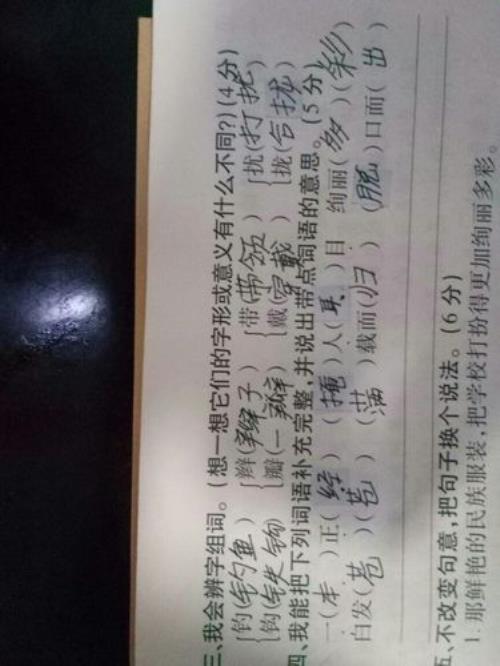 三、我会辨字组词。(想一想它们的字形或意义有什么不同?)(4分)
钓(钓鱼) 辫(辫子) 带(带领) 扰(打扰)
钩(铁钩) 瓣(一瓣) 戴(穿戴) 拢(合拢)
四、我能把下列词语补充完整,并说出带点词语的意思。(5分)
一(本)正(经) (掩)人(耳)目 绚丽(多)(彩)
白发(苍)(苍) (满)载而(归) (脱)口而(出)
五、不改变句意,把句子换个说法。(6分)
1. 那鲜艳的民族服装,把学校打扮得更加绚丽多彩。